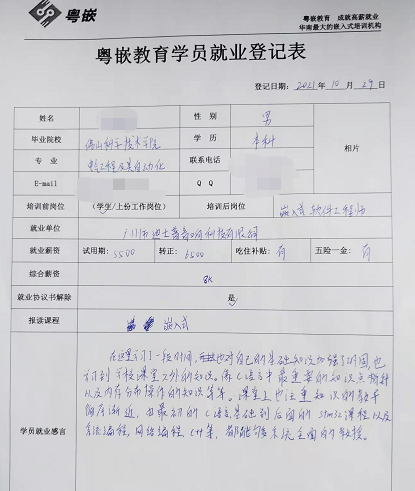 粤嵌
粤嵌教育 成就高薪就业
华南最大的嵌入式培训机构
粤嵌教育学员就业登记表
登记日期: 2021 年 10 月 29 日
姓名 性 别 男
毕业院校 佛山科学技术学院 学 历 本科 相片
专 业 工程及其自动化 联系电话
E-mail Q Q
培训前岗位 (学生/上份工作岗位) 培训后岗位 嵌入式软件工程师
就业单位 广州 迪士普音响科技有限公司
就业薪资 试用期: 5500 转正: 6500 吃住补贴: 有 五险一金: 有
综合薪资 8K
就业协议书解除 是
报读课程 嵌入式
在这里 了一段时间, 也对自己的基础知识加强了巩固也
到了学校课堂之外的知识。像C语言中最重要的知识点指针
以及内存分布操作的知识等等。课堂上也注重知识的
循序渐近, 由最初的C语言基础到后面的STM32课程以及
系统编程, 网络编程, C++等, 都能 系统全面的教授。
学员就业感言